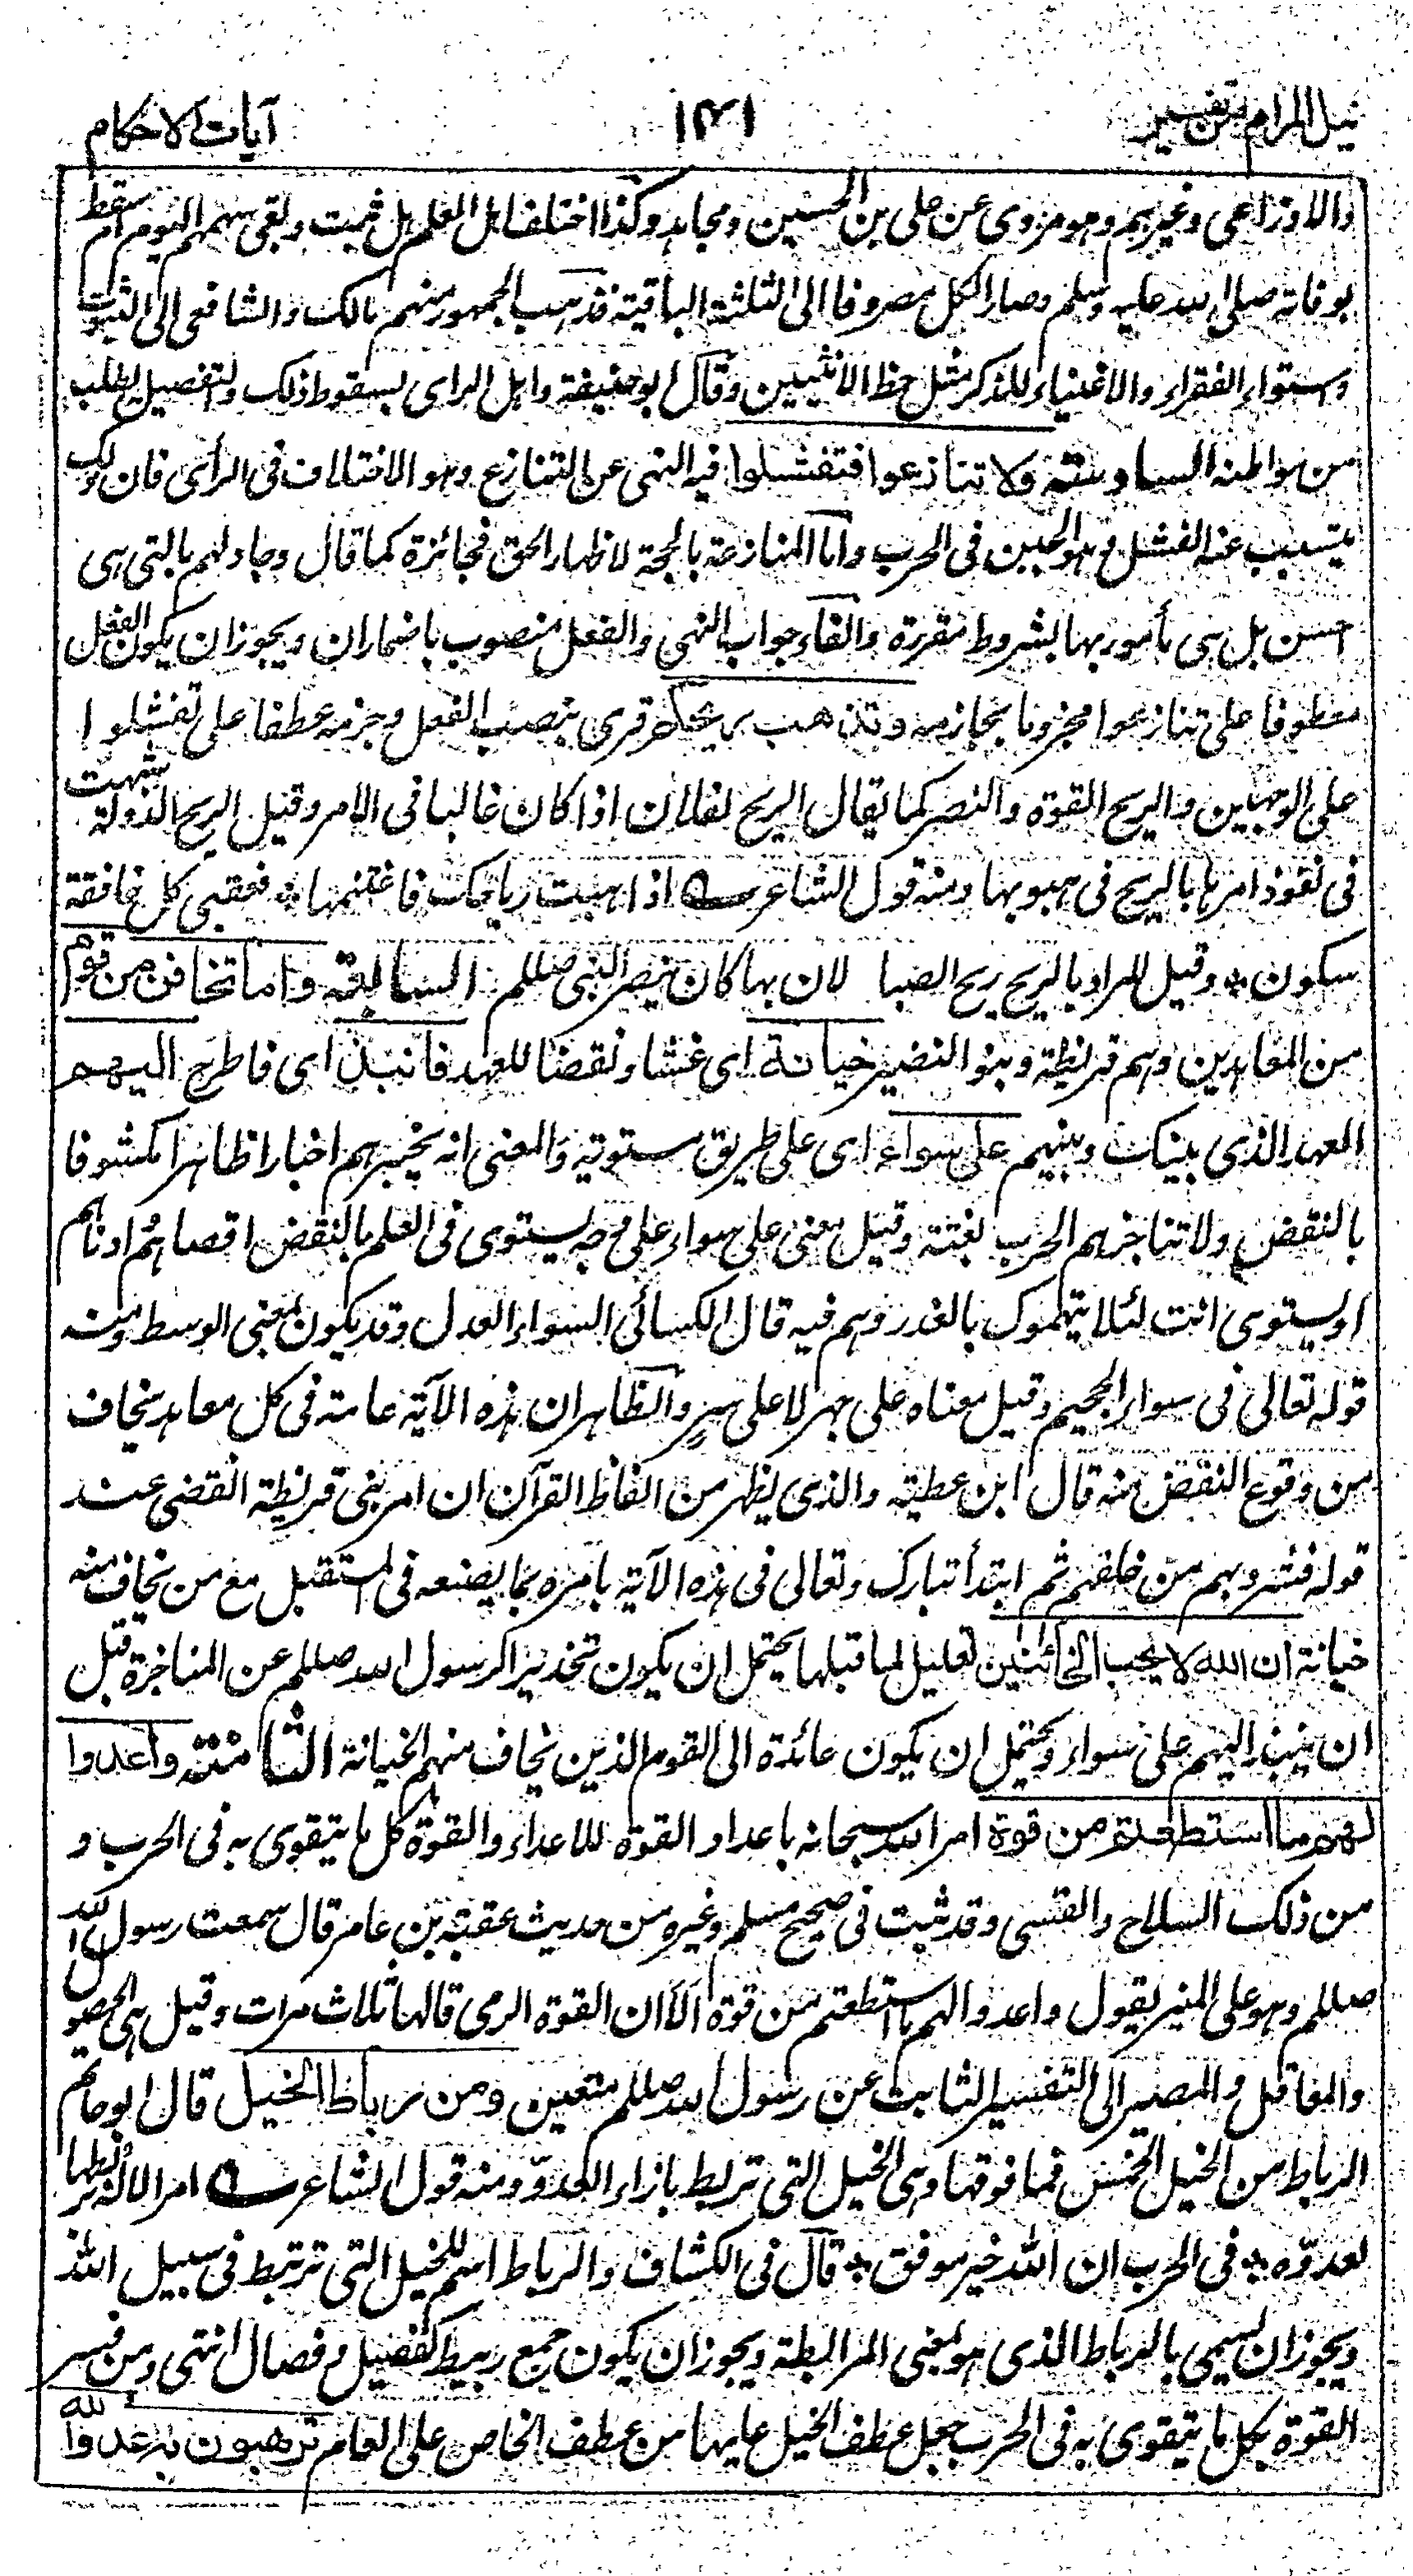 نيل المرام من تفسير ١٤١ آيات الاحكام
والاوزاعي وغيرهم وهو مروي عن علي بن الحسين ومجاهد وكذا اختلف اهل العلم هل ثبت وبقي سهمهم اليوم ام سقط
بوفاته صلى الله عليه وسلم وصار الكل مصروفا الى الثلثة الباقية فذهب الجمهور منهم مالك والشافعي الى الثبوت
وستواء الفقراء والاغنياء للذكر مثل حظ الانثيين وقال ابو حنيفة واهل الراى بسقوط ذلك والتفصيل يطلب
من مواطنه السادسة ولا تنازعوا فتفشلوا فيه النهي عن التنازع وهو الاختلاف في الرأى فان ذلك
يتسبب عنه الفشل وهو الجبن في الحرب واما المنازعة بالحجة لاظهار الحق فجائزة كما قال وجادلهم بالتي هي
احسن بل هي مأمور بها بشروط مقررة والفاء جواب النهي والفعل منصوب باضمار ان ويجوز ان يكون الفعل
معطوفا على تنازعوا مجزوما بجازمه وتذهب ريحكم قرى بنصب الفعل وجزمه عطفا على تفشلوا
على الوجهين والريح القوة والنصر كما يقال الريح لفلان اذا كان غالبا في الامر وقيل الريح الدولة شبهت
في نفوذ امرها بالريح في هبوبها ومنه قول الشاعر اذا هبت رياحك فاغتنمها ❊ فعقبى كل خافقة
سكون ❊ وقيل المراد بالريح ريح الصبا لان بها كان ينصر النبي صللم السابعة واما تخافن من قوم
من المعاهدين وهم قريظة وبنو النضير خيانة اى غشا ونقضا للعهد فانبذ اى فاطرح اليهم
العهد الذى بينك وبينهم على سواء اى على طريق مستوية والمعنى انه يخبرهم اخبارا ظاهرا مكشوفا
بالنقض ولا تناجزهم الحرب بغتة وقيل معنى على سواء على وجه يستوى في العلم بالنقض اقصاهم وادناهم
او يستوى انت لئلا يتهموك بالغدر وهم فيه قال الكسائي السواء العدل وقد يكون بمعنى الوسط ومنه
قوله تعالى في سواء الجحيم وقيل معناه على جهر لا على سر والظاهر ان هذه الآية عامة في كل معاهد يخاف
من وقوع النقض منه قال ابن عطية والذى يظهر من الفاظ القرآن ان امر بني قريظة انقضى عند
قوله فشرد بهم من خلفهم ثم ابتدأ تبارك وتعالى في هذه الآية بامره بما يصنعه في المستقبل مع من يخاف منه
خيانة ان الله لا يحب الخائنين تعليل لما قبلها يحتمل ان يكون تحذيرا لرسول الله صللم عن المناجزة قبل
ان ينبذ اليهم على سواء ويحتمل ان يكون عائدة الى القوم الذين يخاف منهم الخيانة الثامنة واعدوا
لهم ما استطعتم من قوة امر الله سبحانه باعداد القوة للاعداء والقوة كل ما يتقوى به في الحرب و
من ذلك السلاح والقسى وقد ثبت في صحيح مسلم وغيره من حديث عقبة بن عامر قال سمعت رسول الله
صللم وهو على المنبر يقول واعدوا لهم ما استطعتم من قوة الا ان القوة الرمى قالها ثلاث مرات وقيل هى الحصون
والمعاقل والمصير الى التفسير الثابت عن رسول الله صللم متعين ومن رباط الخيل قال ابو حاتم
الرباط من الخيل الخمس فما فوقها وهى الخيل التى تربط بازاء العدوّ ومنه قول الشاعر امر الاله بربطها
لعدوّه ❊ في الحرب ان الله خير موفق ❊ قال في الكشاف والرباط اسم للخيل التى ترتبط في سبيل الله
ويجوز ان يسمى بالرباط الذى هو بمعنى المرابطة ويجوز ان يكون جمع ربيط كفصيل وفصال انتهى ومن فسر
القوة بكل ما يتقوى به في الحرب جعل عطف الخيل عليها من عطف الخاص على العام ترهبون به عدو الله